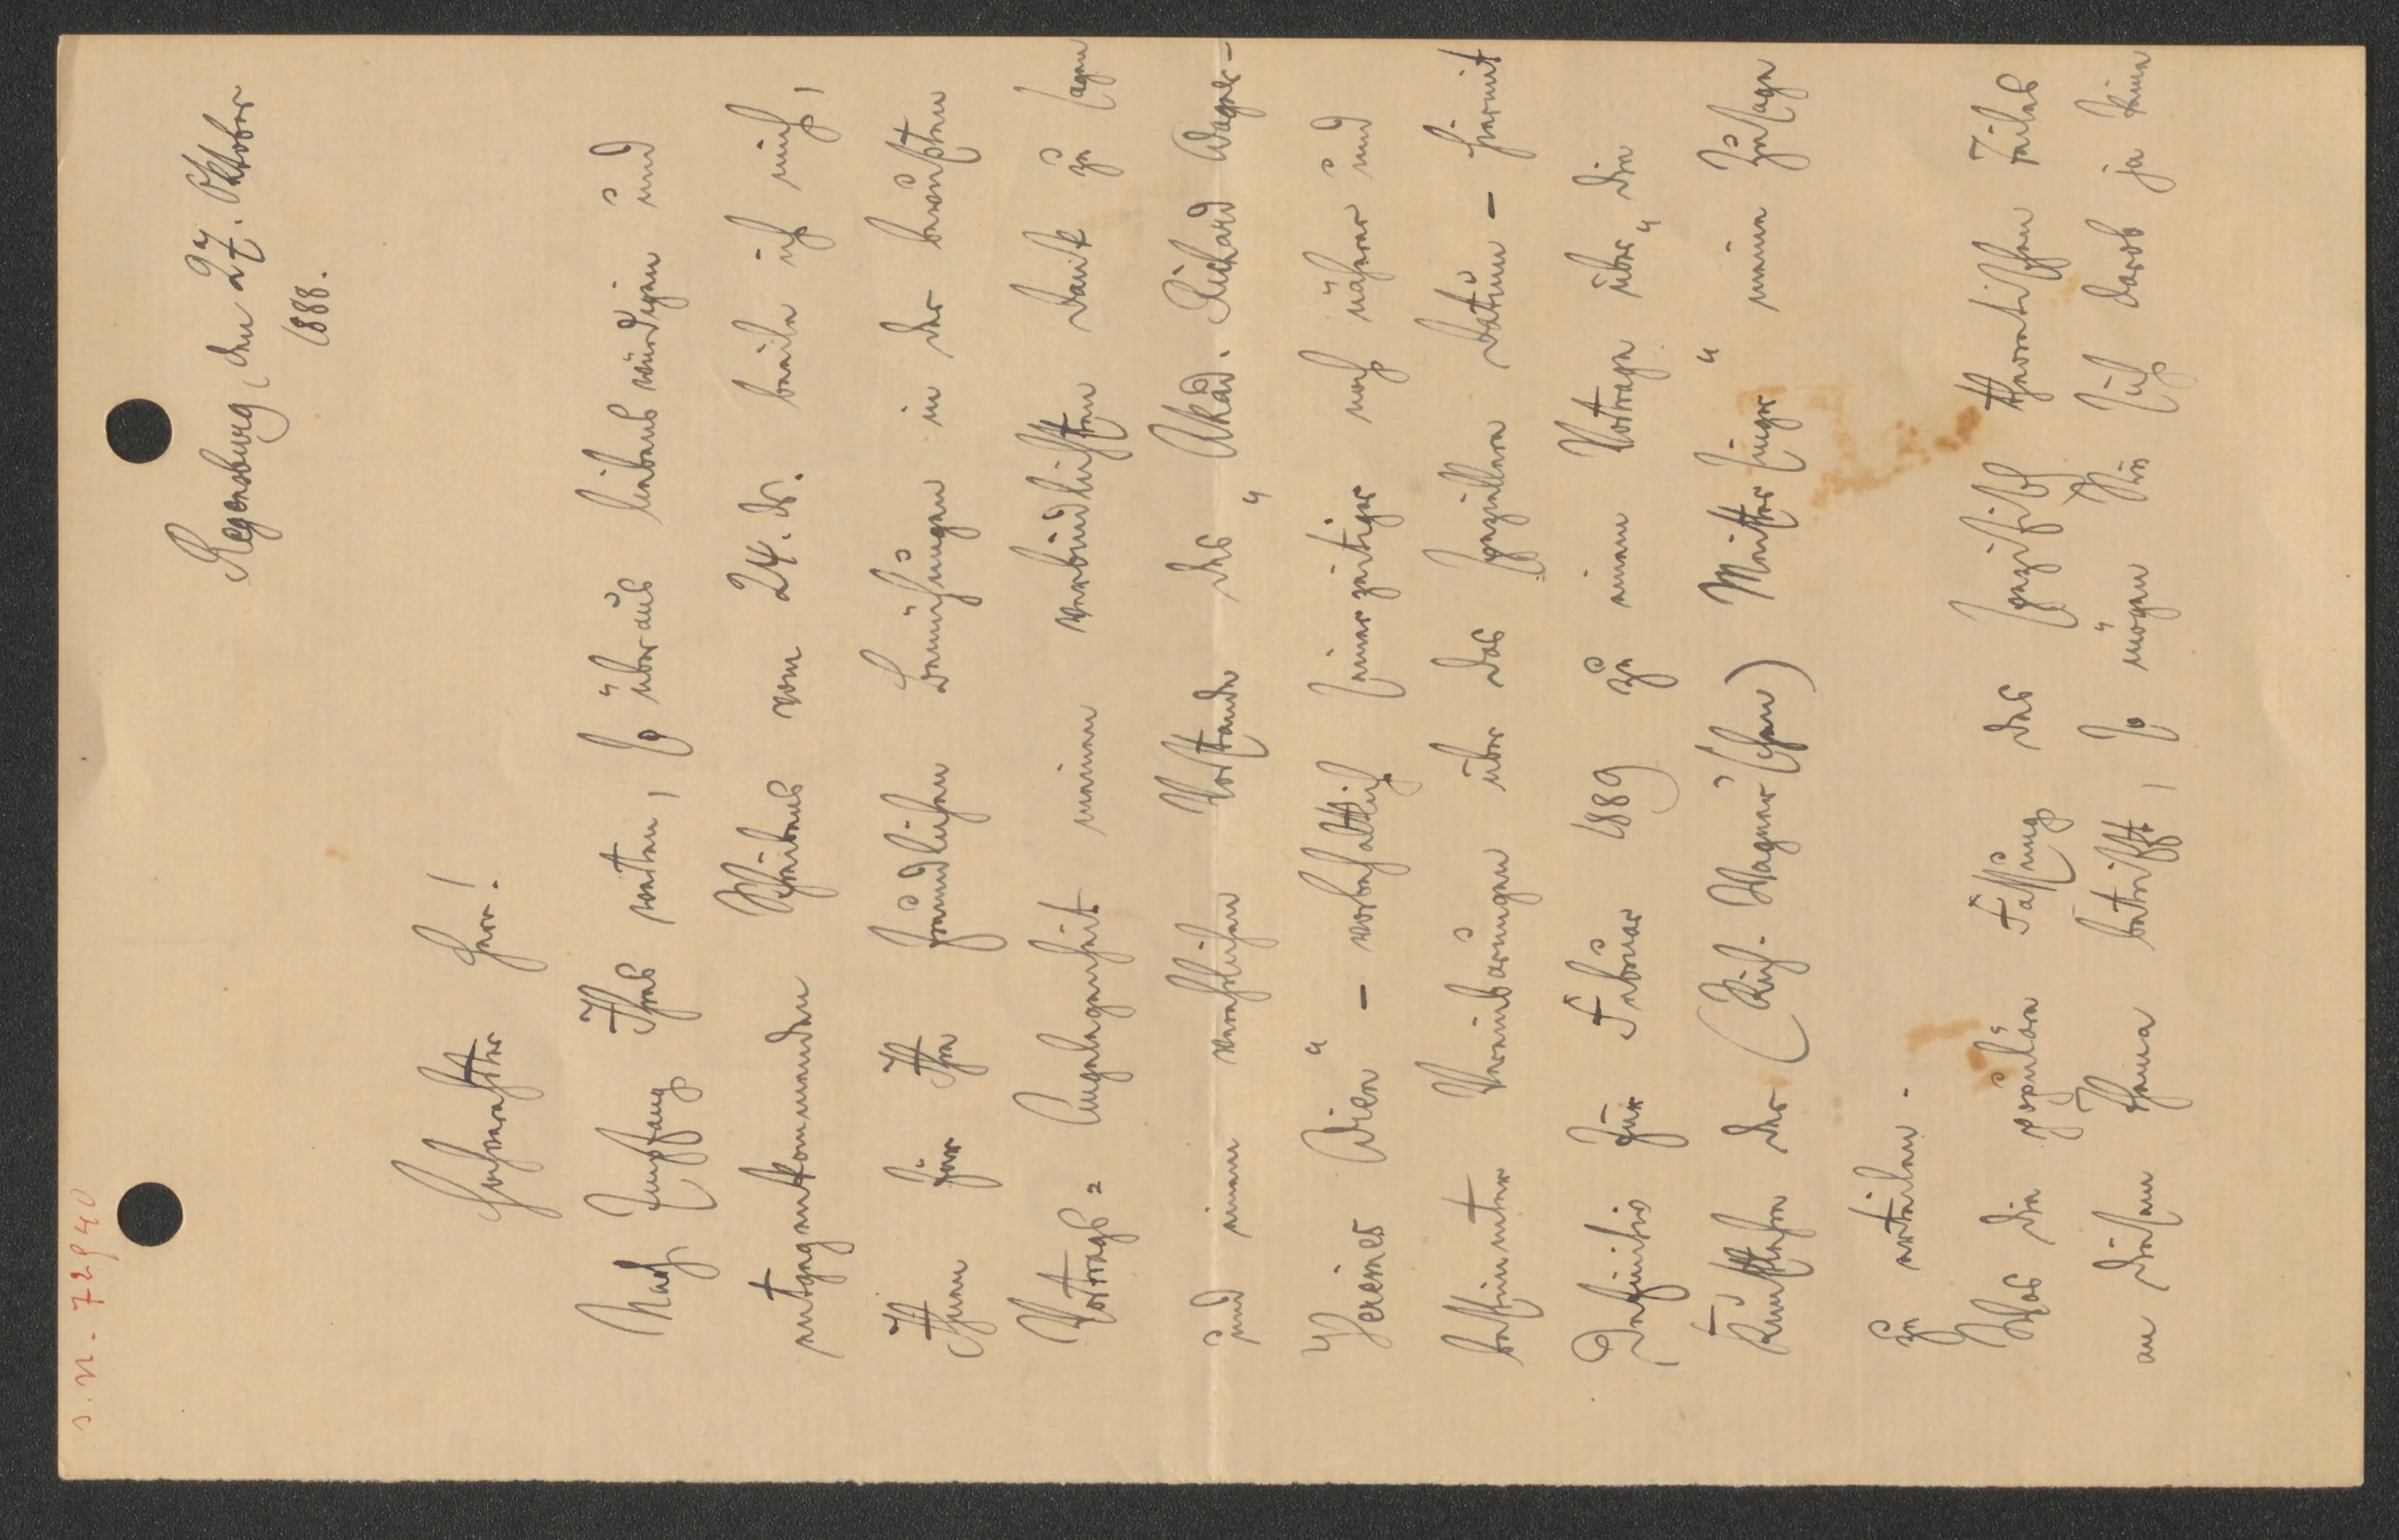 J. N. 72940
Regensburg, den 27. Oktober
1888.
Hochverehrter Herr!
Nach Empfang Ihres werten, so überaus liebenswürdigen und
entgegenkommenden Schreibens vom 24. ds. beeile ich mich,
Ihnen für Ihre freundlichen Bemühungen in der bewußten
Vortrags-Angelegenheit meinen verbindlichsten Dank zu sagen
und einem verehrlichen Vorstande des „Akad. Richard Wagner-
Vereines Wien“ – vorbehaltlich seinerzeitiger noch näherer und
bestimmter Vereinbarungen über das speziellere Datum – hiermit
Definitiv für Februar 1889 zu einem Vortrage über „die
Kunstlehre der (Rich. Wagner'schen) Meistersinger“ meine Zusage
zu erteilen.
Was die populäre Fassung des spezifisch theoretischen Teiles
an diesem Thema betrifft, so mögen Sie sich darob ja keine